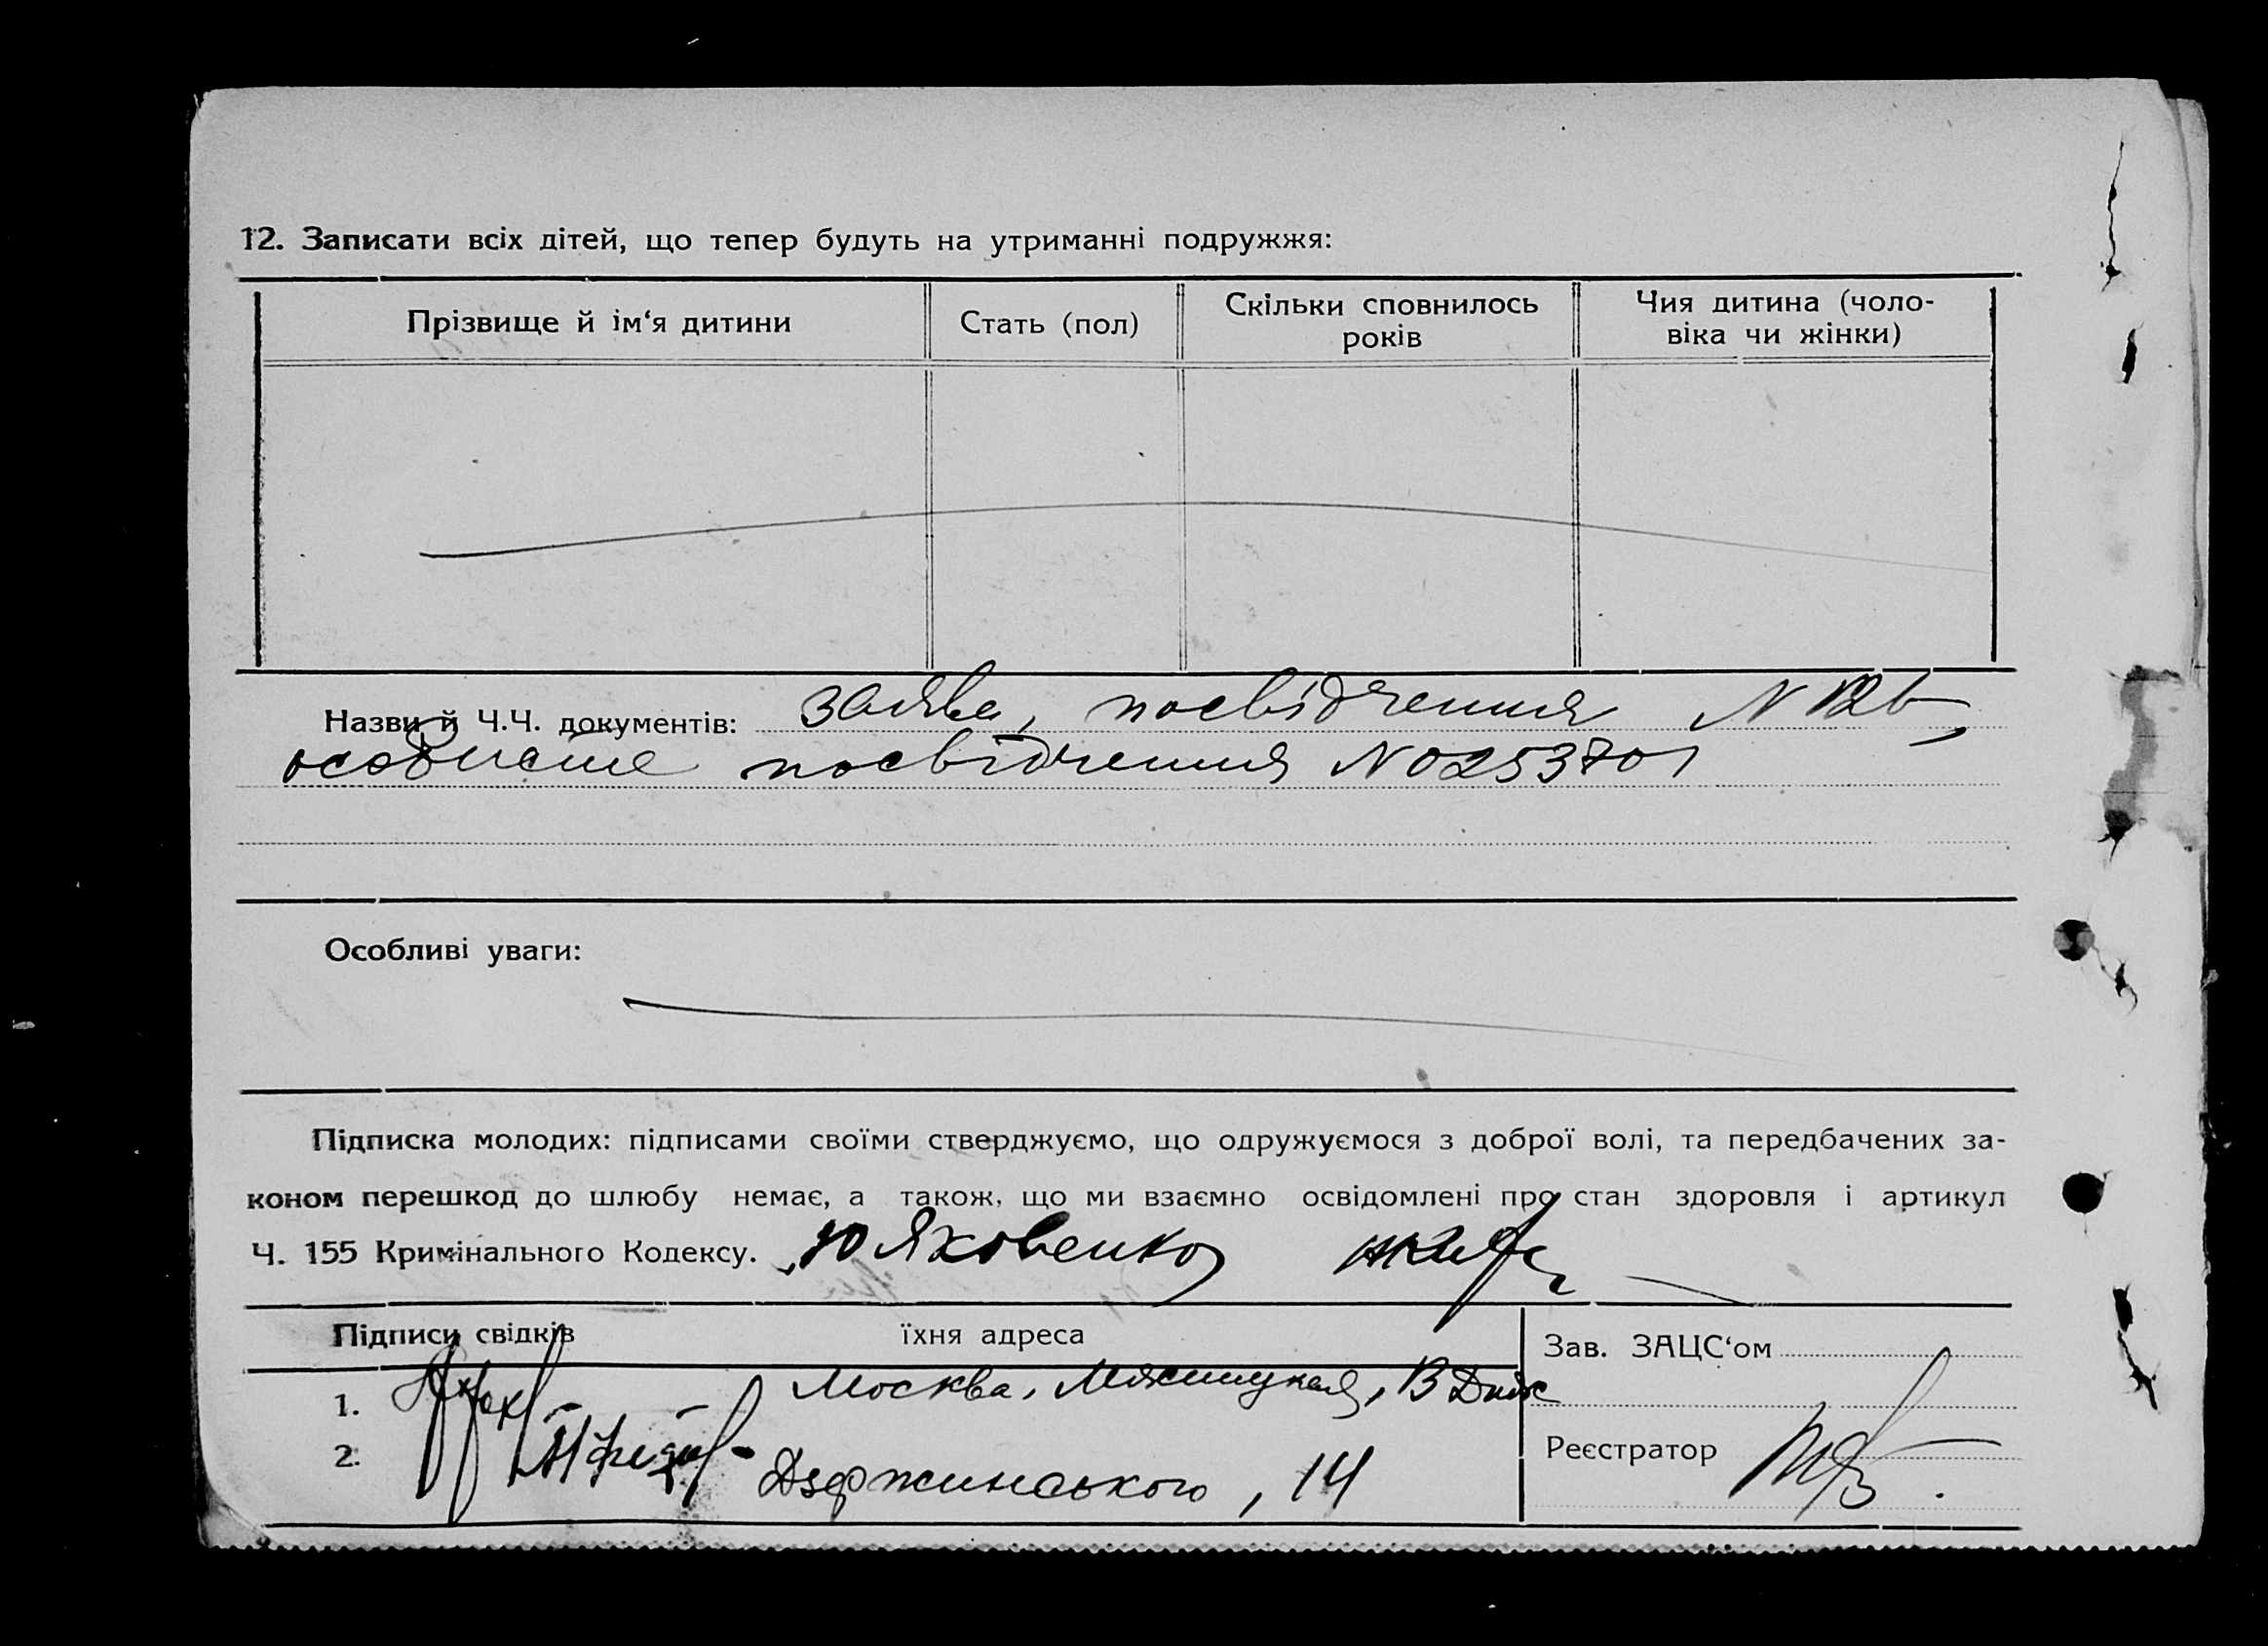 12. Записати всіх дітей, що тепер будуть на утриманні подружжя:
Прізвище й ім‘я дитини
Стать (пол)
Скільки сповнилось
років
Чия дитина (чоло-
віка чи жінки)
Назви й Ч.Ч. документів: заява, посвідчення N
особисте посвідчення N 0253701
Особливі уваги:
Підписка молодих: підписами своїми стверджуємо, що одружуємося з доброї волі, та передбачених за-
коном перешкод до шлюбу немає, а також, що ми взаємно освідомлені про стан здоровля і артикул
Ч. 155 Кримінального Кодексу. Ю Яковенко
Підписи свідків їхня адреса
Зав. ЗАЦС‘ом
1. Москва,
2. Дзержинського, 14
Реєстратор